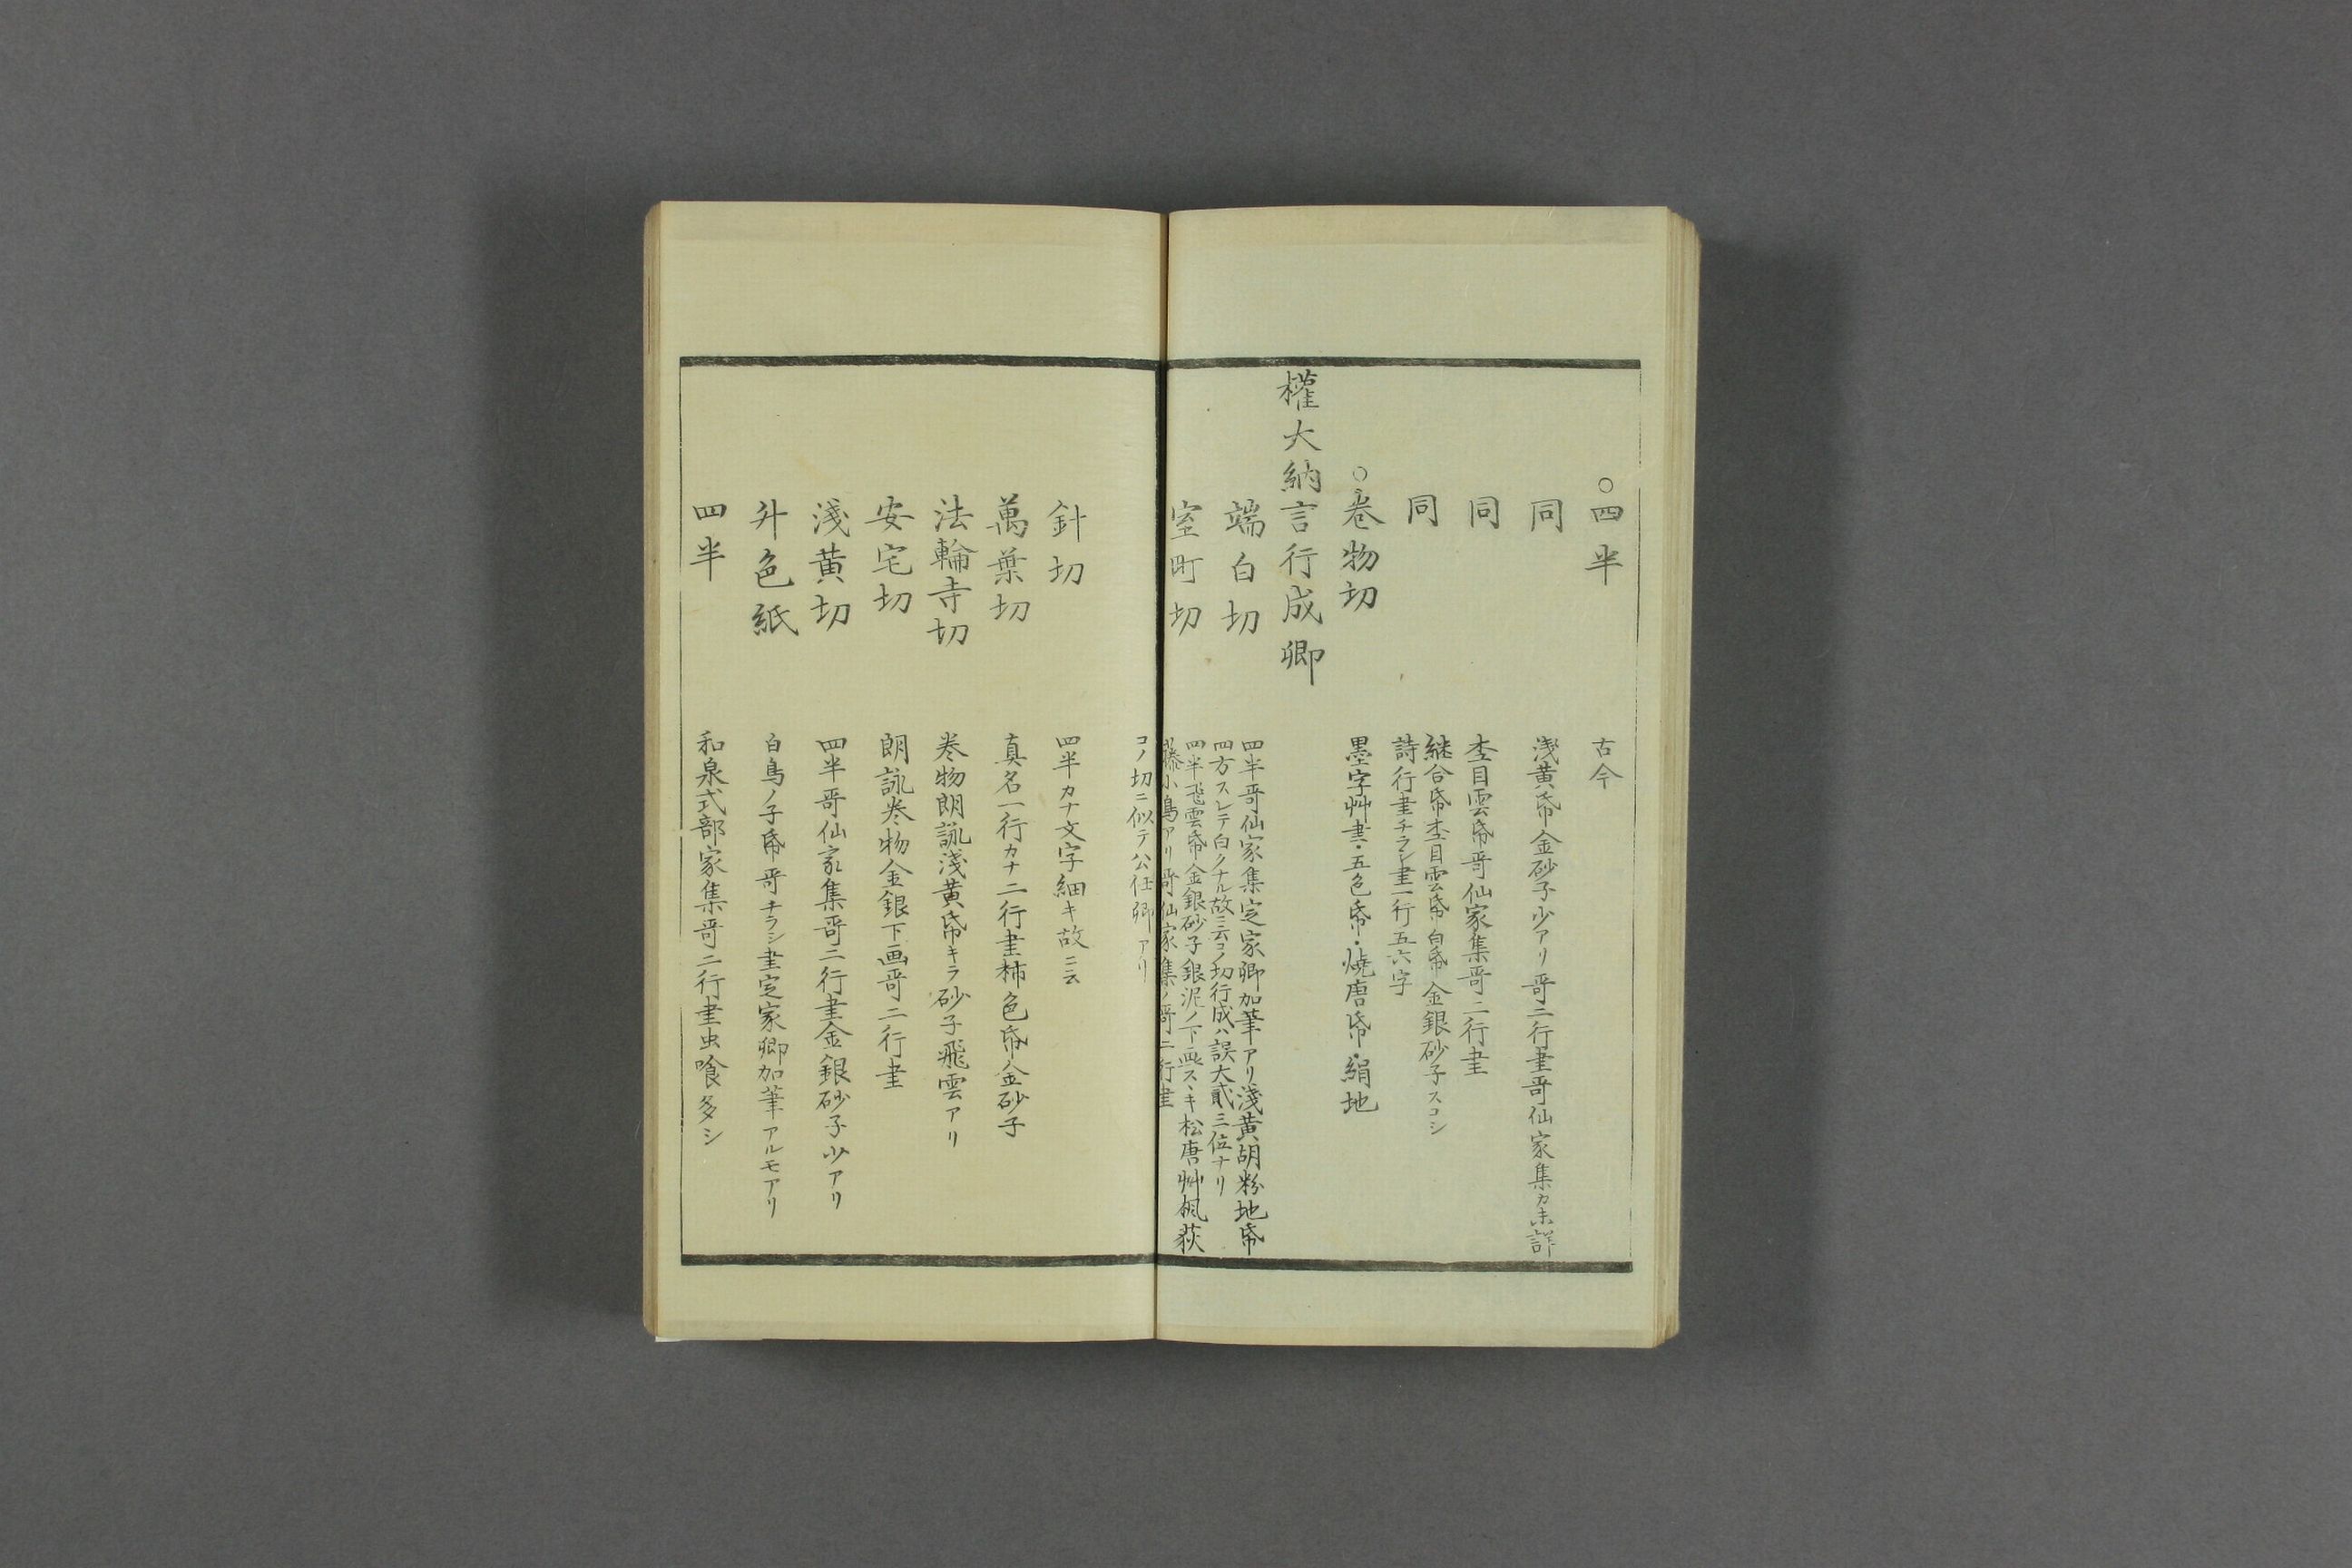 ○四半　古今
同　浅黄帋金砂子少アリ哥二行書哥仙家集カ未詳
同　杢目雲帋哥仙家集哥二行書
同　継合帋杢目雲帋白帋金銀砂子スコシ
詩行書チラシ書一行五六字
○巻物切　墨字艸書・五色帋・焼唐帋・絹地
權大納言行成卿
端白切　四半哥仙家集定家卿加筆アリ淺黄胡粉地帋
四方スレテ白クナル故ニ云コノ切行成ハ誤大貳三位ナリ
室町切　四半飛雲帋金銀砂子銀泥ノ下画スヽキ松唐艸楓荻
藤小鳥アリ哥仙家集ノ哥二行書
コノ切ニ似テ公任卿アリ
針切　四半カナ文字細キ故ニ云
萬葉切　真名一行カナ二行書柿色帋金砂子
法輪寺切　巻物朗詠淺黄帋キラ砂子飛雲アリ
安宅切　朗詠巻物金銀下画哥二行書
淺黄切　四半哥仙家集哥二行書金銀砂子少アリ
升色紙　白鳥ノ子帋哥チラシ書定家卿加筆アルモアリ
四半　和泉式部家集哥二行書虫喰多シ